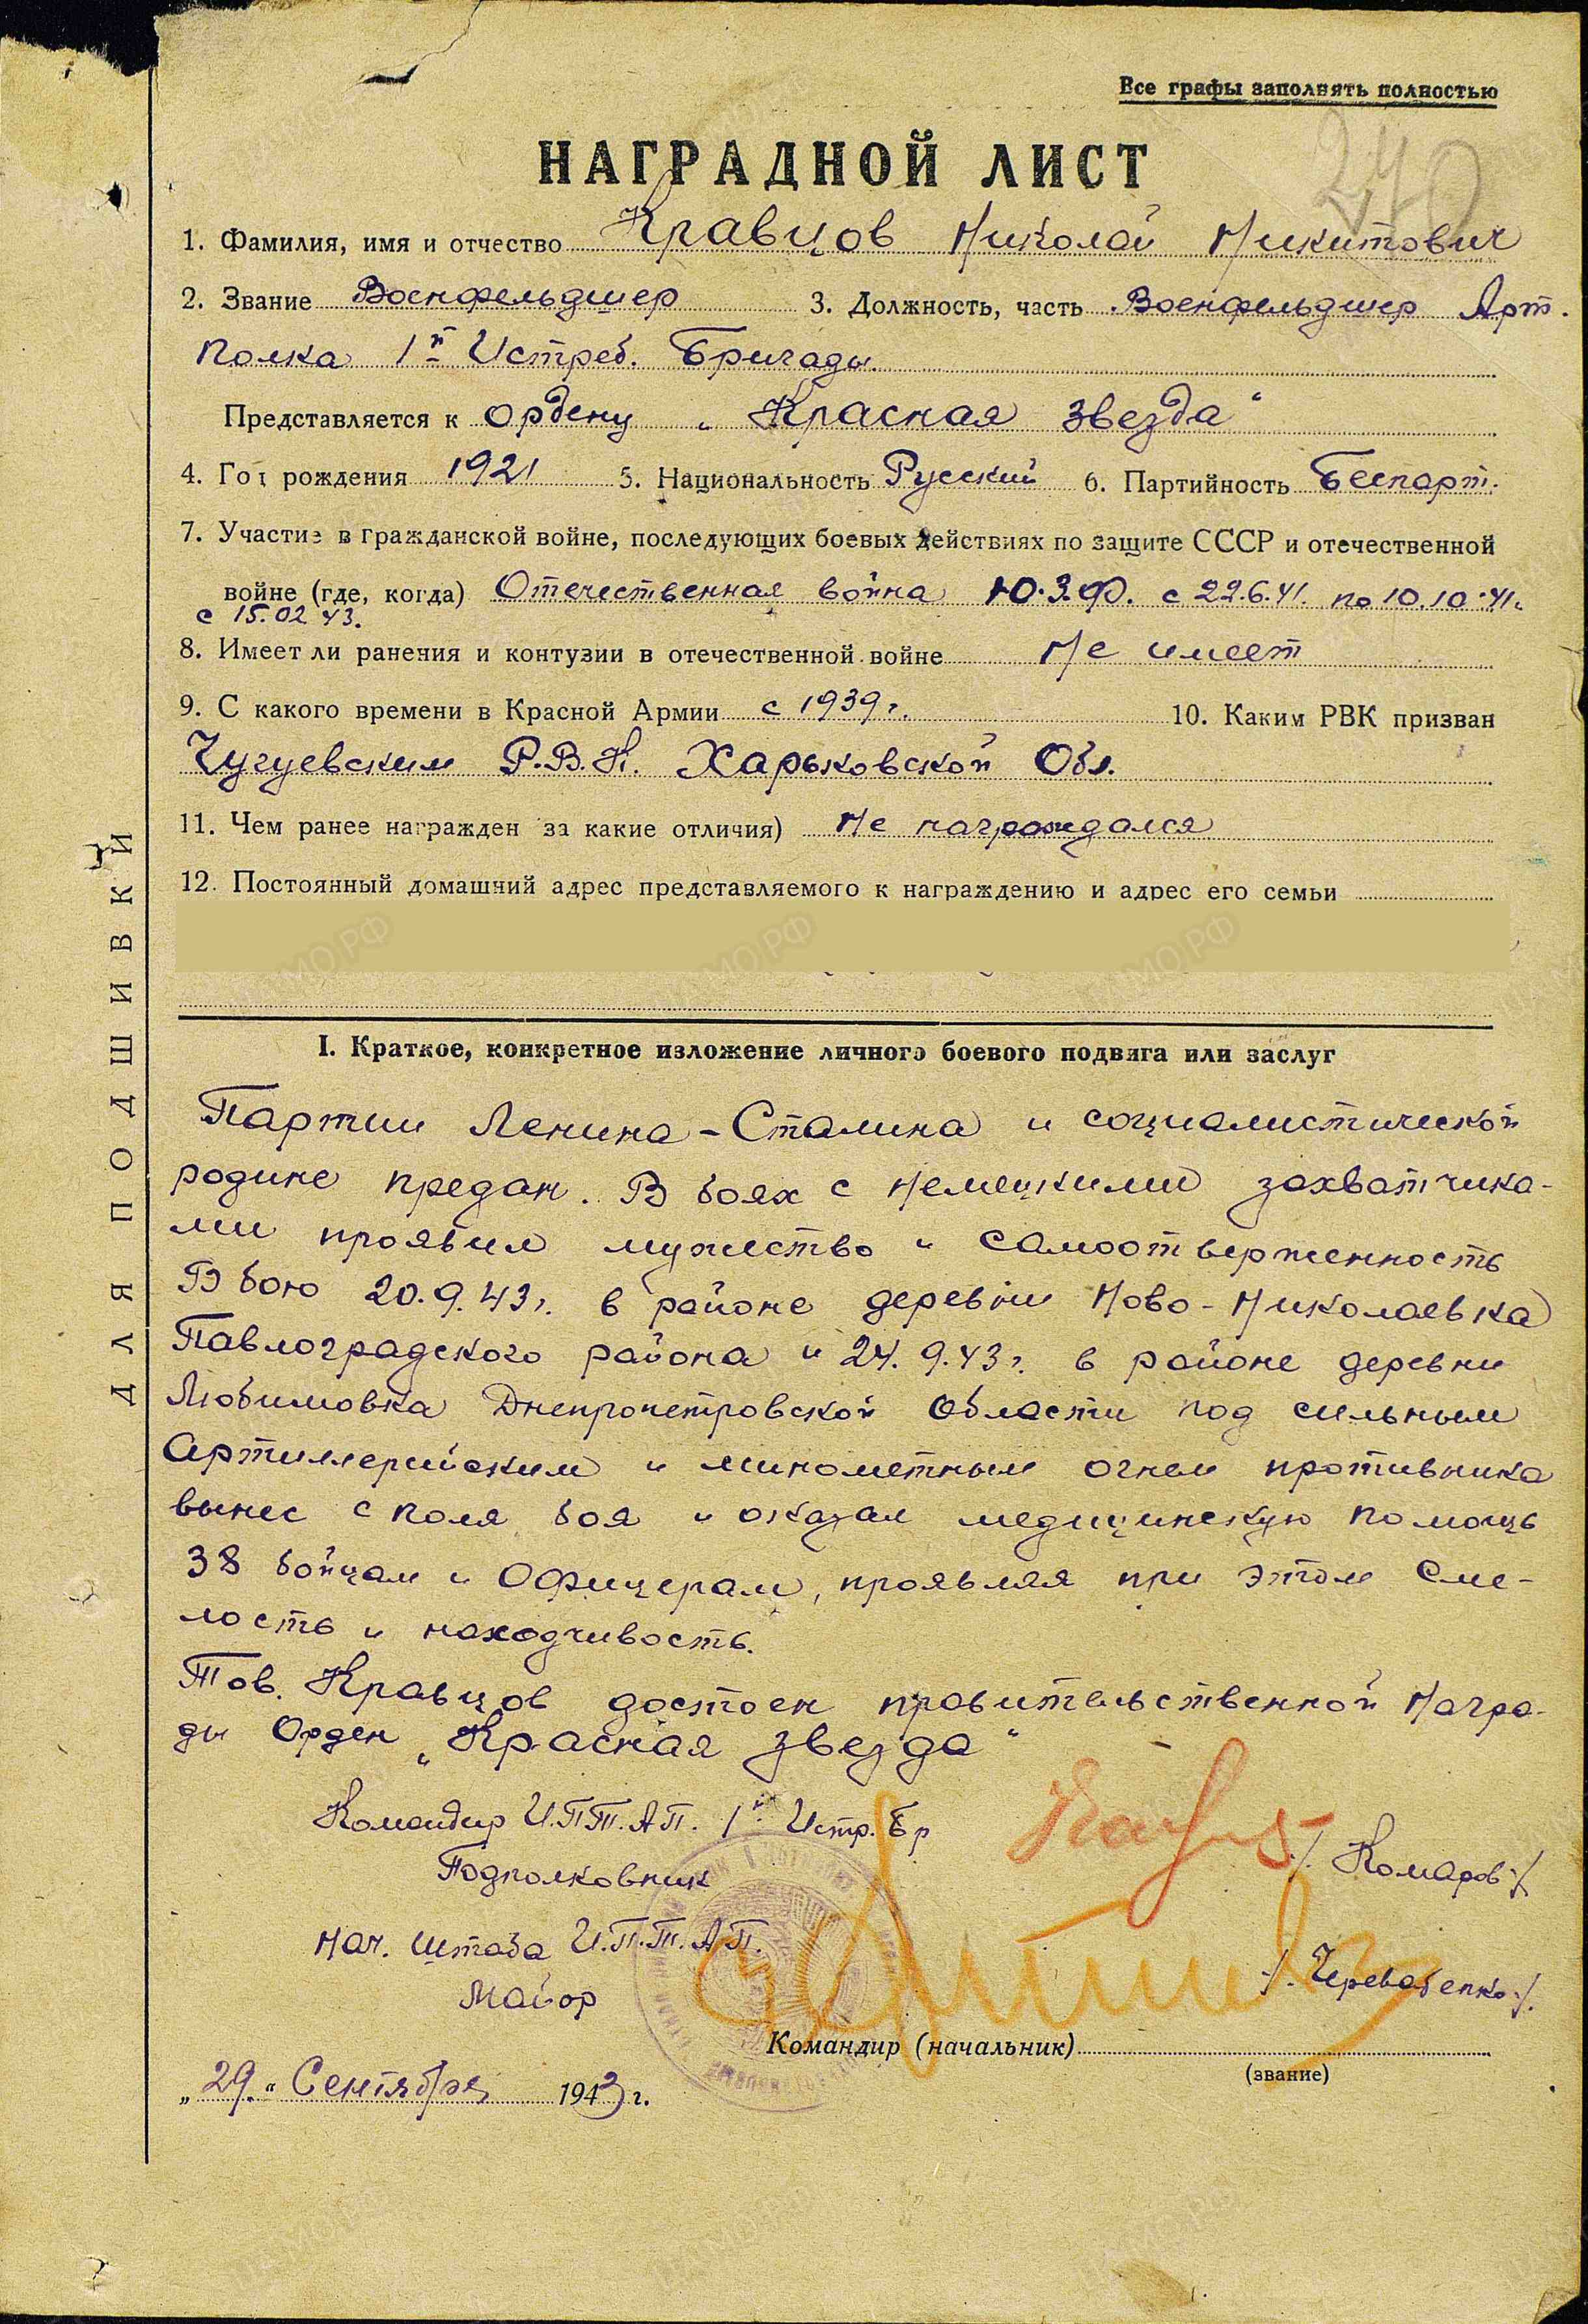 Все графы заполнять полностью
240
НАГРАДНОЙ ЛИСТ
1. Фамилия, имя и отчество Кравцов Николай Никитович
2. Звание Военфельдшер 3. Должность, часть Военфельдшер Арт.
полка 1й Истреб. Бригады.
Представляется к ордену „Красная звезда“
4. Год рождения 1921 5. Национальность Русский 6. Партийность Беспарт.
7. Участие в гражданской войне, последующих боевых действиях по защите СССР и отечественной
войне (где, когда) Отечественная война Ю.З.Ф. с 22.6.41. по 10.10.41г.
с 15.02.43.
8. Имеет ли ранения и контузии в отечественной войне Не имеет
9. С какого времени в Красной Армии с 1939г. 10. Каким РВК призван
Чугуевским Р.В.К. Харьковской Обл.
11. Чем ранее награжден за какие отличия) Не награждался
12. Постоянный домашний адрес представляемого к награждению и адрес его семьи
I. Краткое, конкретное изложение личного боевого подвига или заслуг
Партии Ленина-Сталина и социалистической
родине предан. В боях с немецкими захватчика-
ми проявил мужество и самоотверженность
В бою 20.9.43г. в районе деревни Ново-Николаевка
Павлоградского района и 24.9.43г. в районе деревни
Любимовка Днепропетровской Области под сильным
Артиллерийским и минометным огнем противника
вынес с поля боя и оказал медицинскую помощь
38 бойцам и Офицерам, проявляя при этом Сме-
лость и находчивость.
Тов. Кравцов достоен правительственной Награ-
ды Орден „Красная звезда“
Командир И.П.Т.А.П. 1й Истр. Бр
Подполковник /. Комаров ./
Нач. Штаба И.П.Т.А.П.
Майор /. Череватенко ./
Командир (начальник)
(звание)
„29“ Сентября 1943 г.
ДЛЯ ПОДШИВКИ